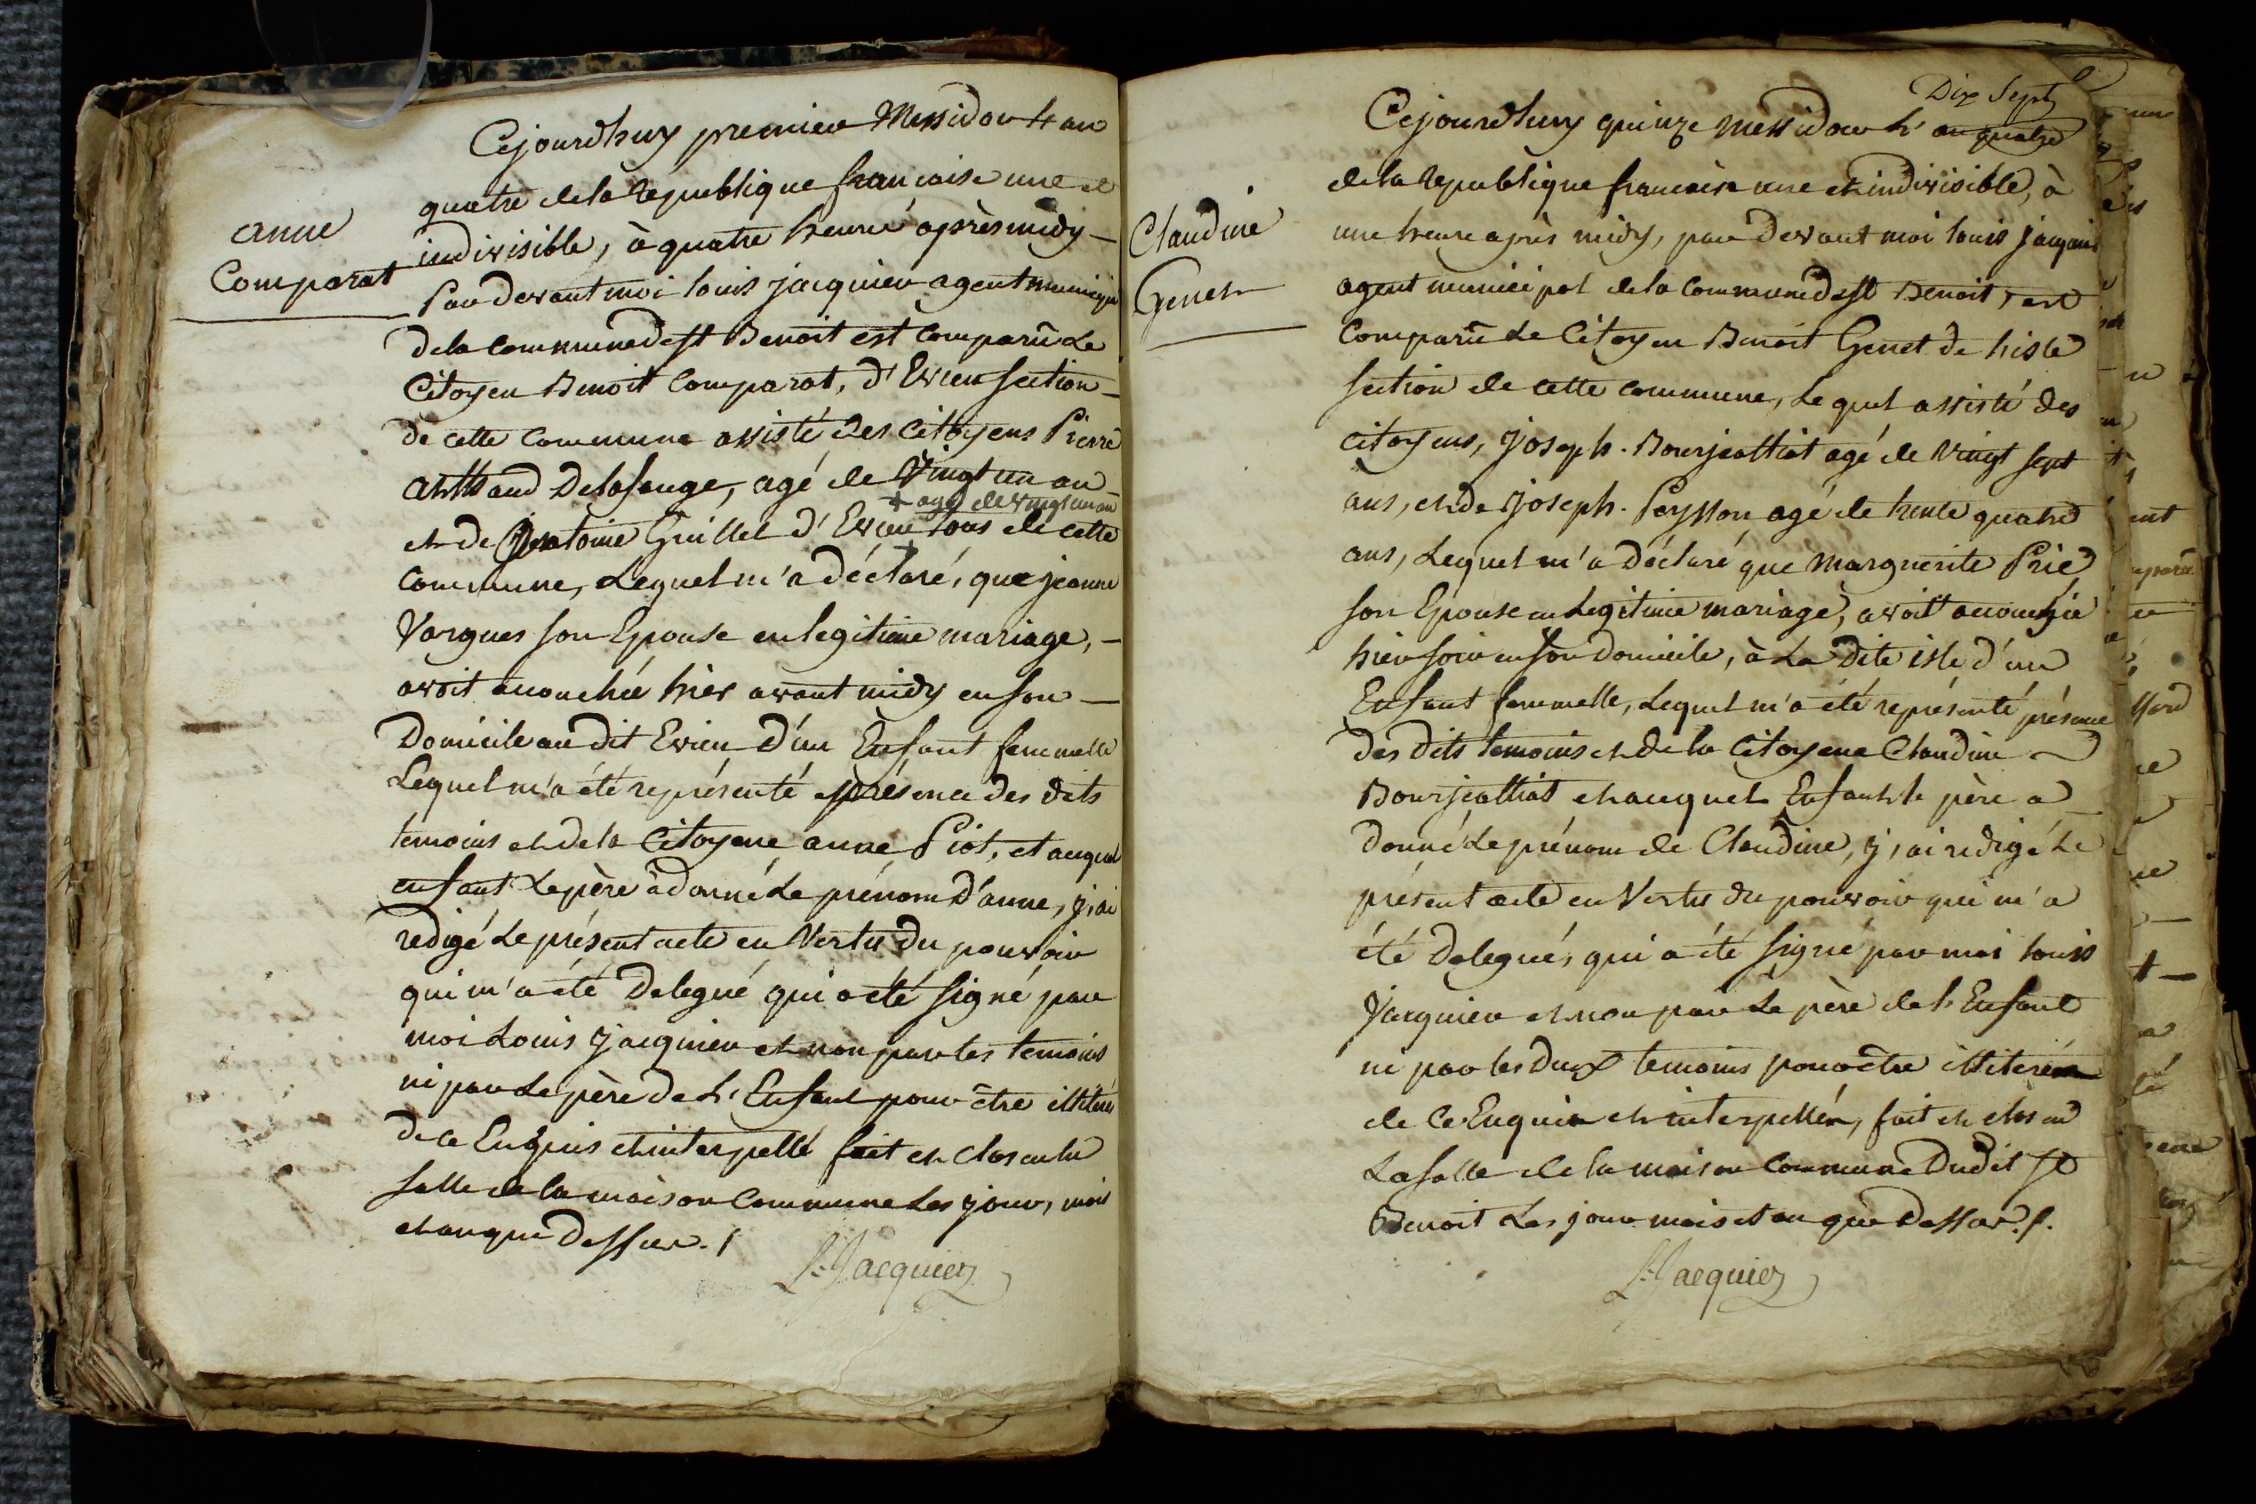 anne
Comparat
Cejourdhuy premier Messidor l'an
quatre de la republique francaise une et
indivisible, à quatre heure après midy
Par devant moi louis jacquier agent municipal
de la commune de st Benoit est comparu Le
Citoyen Benoit Comparat, d'Evieu section
de cette commune assisté des citoyens Pierre
age de vingt un an
commune, Lequel m'a déclaré, que jeanne
Vargues son Epouse en legitime mariage,
avoit accouchée hier avant midy en son
Domicile au dit Evieu d'un Enfant femmelle
Lequel m'a été représenté présence des dits
temoins et de la Citoyene anne Piot, et auquel
enfant Le père à donné Le prénom d'anne, j'ai
redigé Le présent acte en Vertu du pouvoir
qui m'a été Delegué qui a été signé par
moi Louis Jacquier et non par les temoins
ni par Le père de L'Enfant pour être illiteré
de ce Enquis et interpellé fait et clos en la
salle de la maison Commune Les jour, mois
et an que Dessus./
L. Jacquier
Dix Sept
Claudine
Genet
Cejourdhuy quinze Messidor l' an quatre
de la republique francaise une et indivisible, à
une heure après midy, par devant moi louis jacquier
agent municipal de la Commune de st Benoit, est
Comparu Le Citoyen Benoit Genet de lisle
section de cette commune, Lequel assisté des
citoyens, Joseph. Bourjeallliat agé de Vingt sept
ans, et de Joseph. Peysson agé de trente quatre
ans, Lequel m'a déclaré que Marguerite Prié
son Epouse en Legitime mariage, avoit accouchée
hier soir en son domicile, à La Dite isle d'un
Enfant femmelle, Lequel m'a été représenté présence
des dits temoins et de la Citoyene Claudine
Bourjealliat et auquel Enfant le père a
donné Le prénom de Claudine, j'ai redigé Le
présent acte en Vertu du pouvoir qui m'a
été Delegué, qui a été signé par moi louis
Jacquier et non par Le père de l'Enfant
ni par les deux temoins pour être illiteré
de ce Enquis et interpellés, fait et clos en
La salle de la maison Commune dudit st
Benoit Les jour mois et an que Dessus./.
L. Jacquier